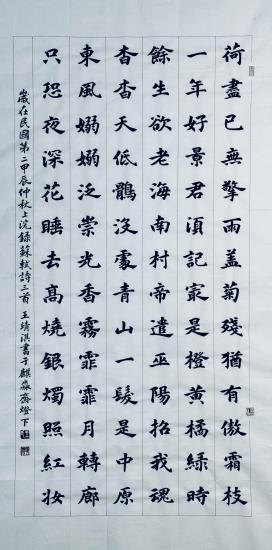 荷盡已無擎雨盖菊殘猶有傲霜枝
一年好景君湏記㝡是橙黃橘綠時
餘生欲老海南村帝遣巫陽招我魂
杳杳天低鶻沒處青山一髮是中原
東風嫋嫋泛崇光香霧霏霏月轉廊
只恐夜深花睡去高燒銀燭照紅妝
歲在民國第二甲辰仲秋上浣錄蘇軾詩三首王靖淇書于麒淼齋燈下